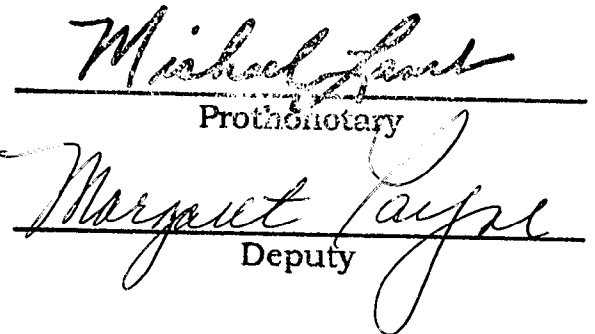 Michael Lamb
Prothonotary
Margaret Payne
Deputy